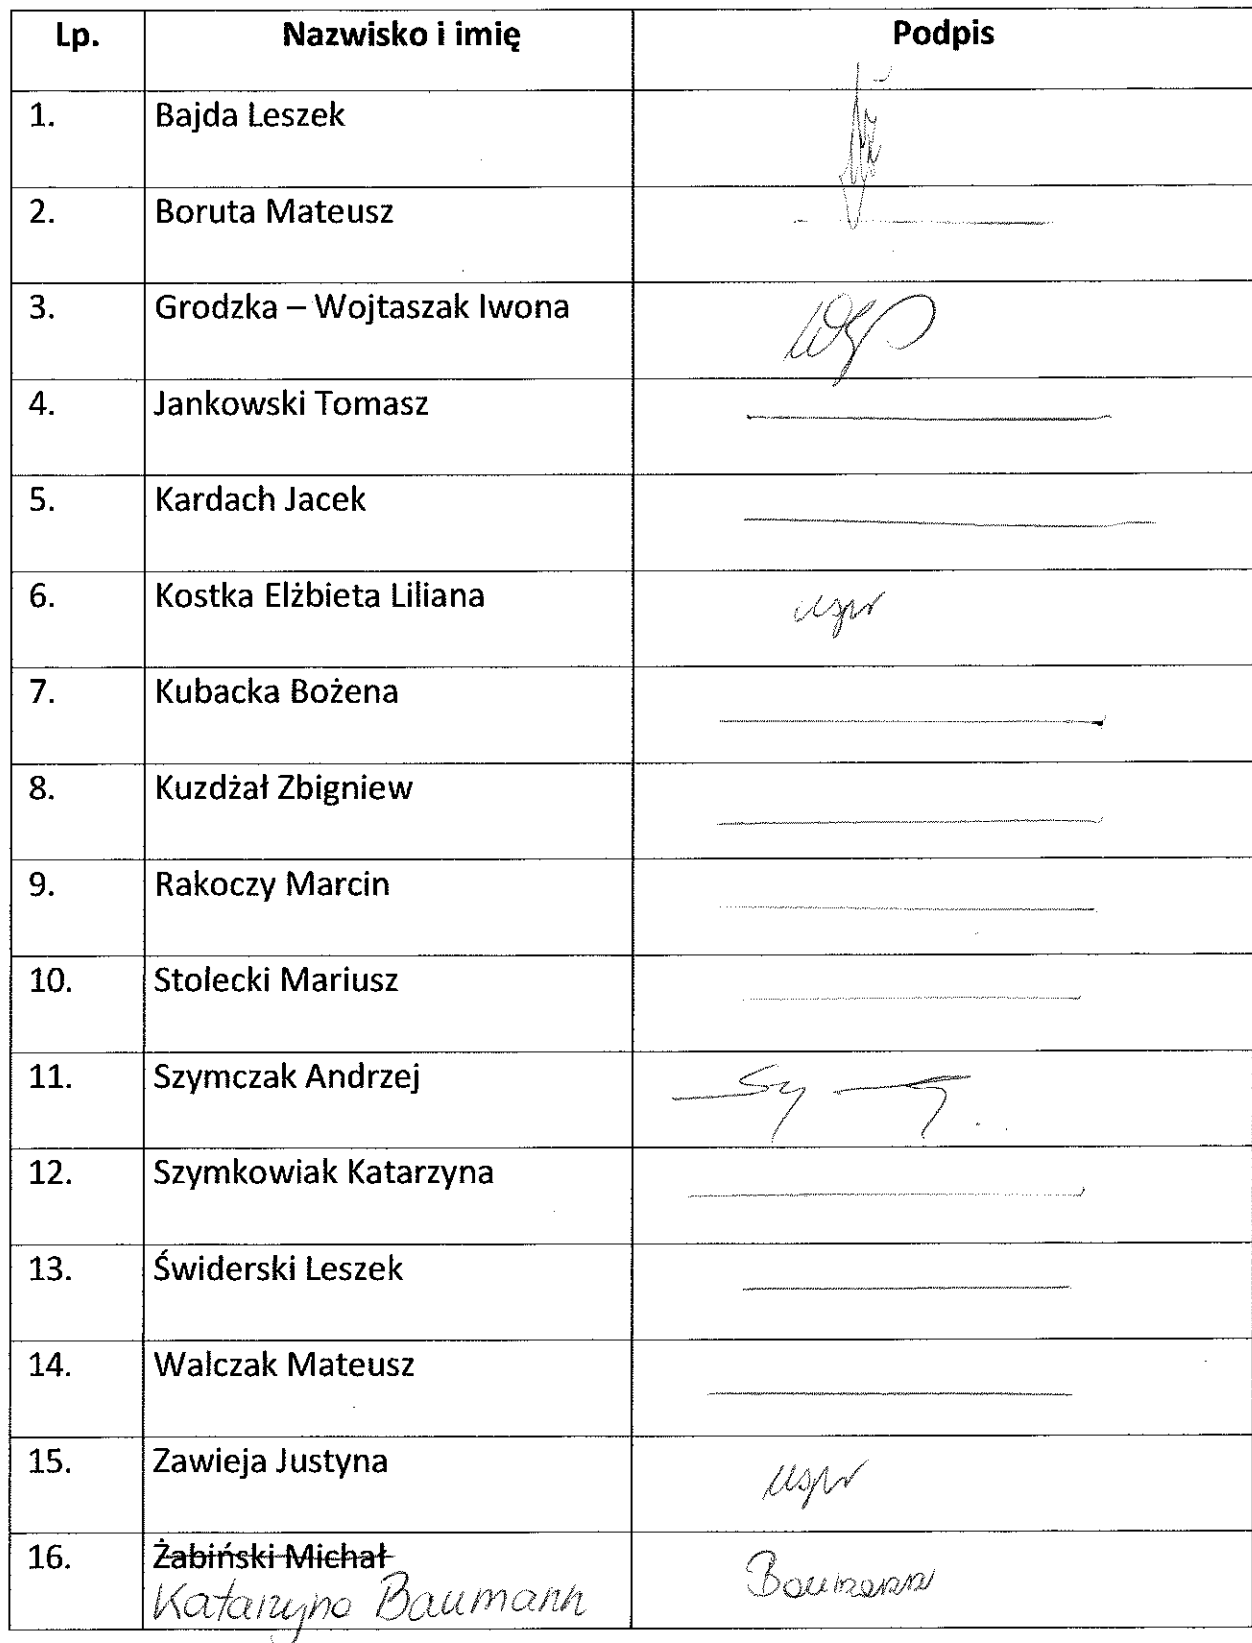 Lp. Nazwisko i imię Podpis
1. Bajda Leszek
2. Boruta Mateusz
3. Grodzka – Wojtaszak Iwona
4. Jankowski Tomasz
5. Kardach Jacek
6. Kostka Elżbieta Liliana uspr
7. Kubacka Bożena
8. Kuzdżał Zbigniew
9. Rakoczy Marcin
10. Stolecki Mariusz
11. Szymczak Andrzej
12. Szymkowiak Katarzyna
13. Świderski Leszek
14. Walczak Mateusz
15. Zawieja Justyna uspr
16. Żabiński Michał Baumann
Katarzyna Baumann